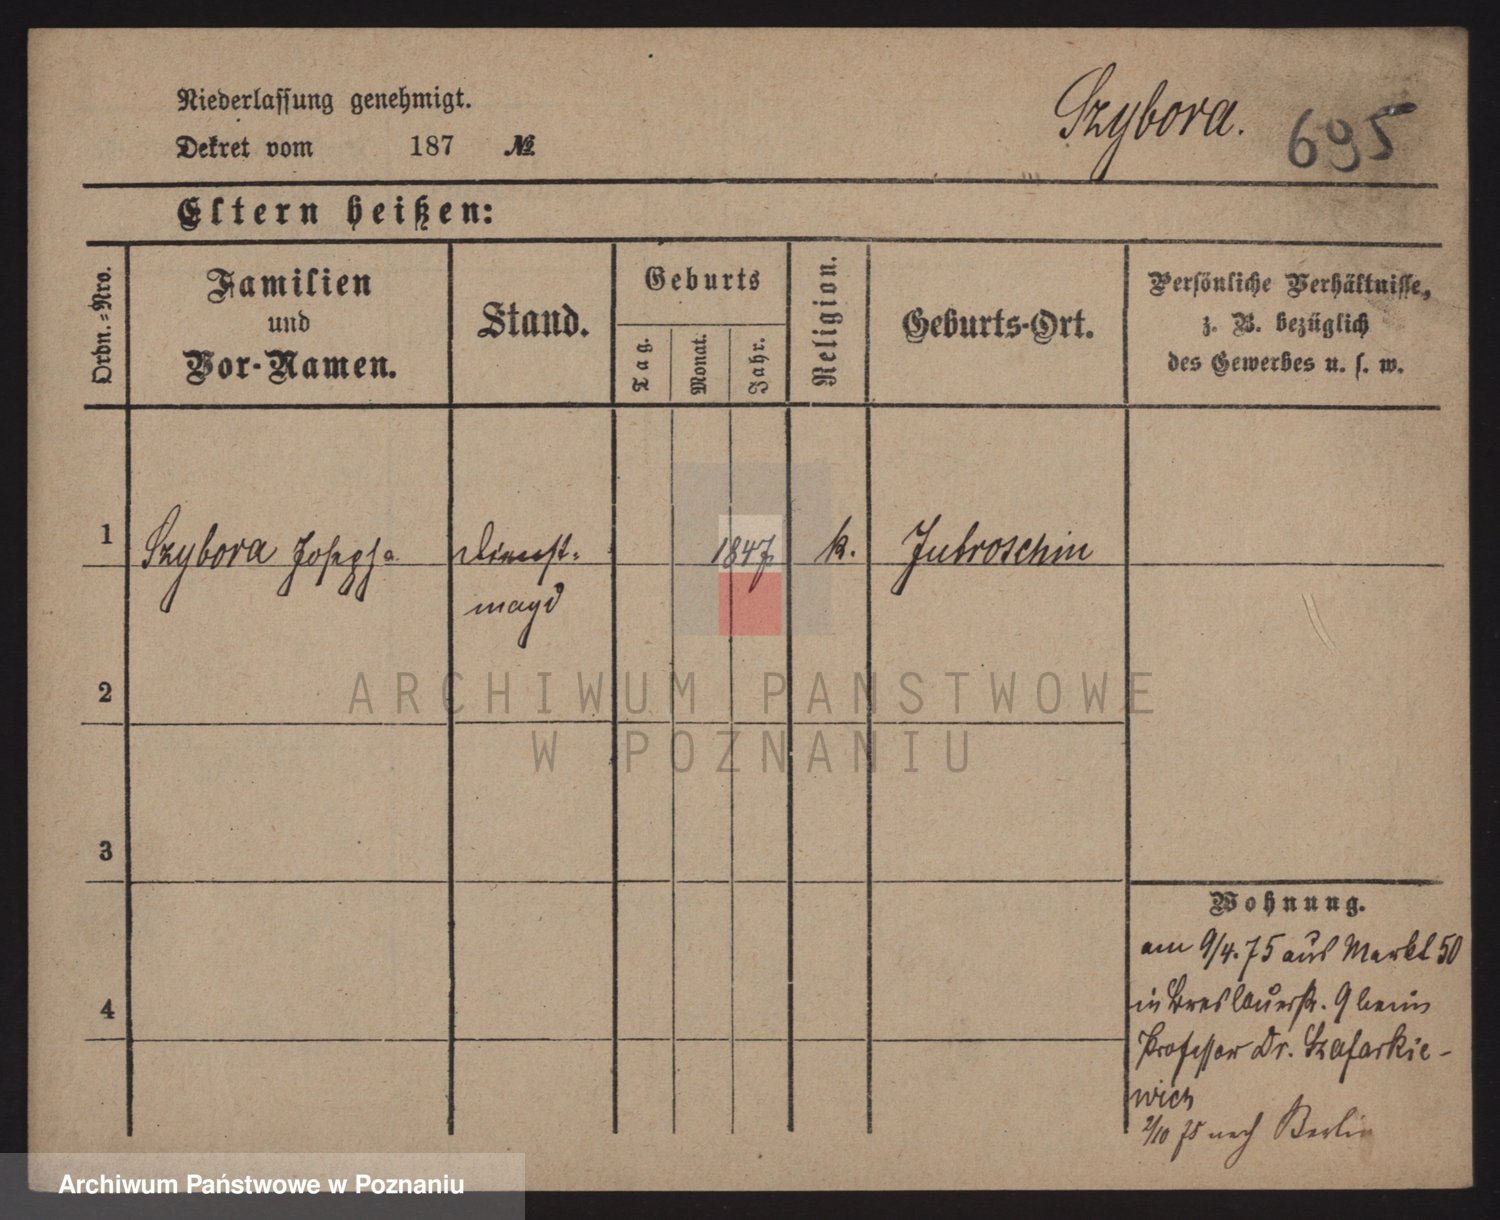 Niederlassung genehmigt.
Dekret vom 187 №
Szybora.
695
Eltern heißen:
Ordn.-Nro.
Familien
und
Vor-Namen.
Stand.
Geburts
Tag.
Monat.
Jahr.
Religion.
Geburts-Ort.
Persönliche Verhältnisse,
z. B. bezüglich
des Gewerbes u. s. w.
1 Szybora Josepha Dienst- 1847 k. Jutroschin
magd
2
ARCHIWUM PAŃSTWOWE
W POZNANIU
3
Wohnung.
am 9/4. 75 aus Markt 50
in Breslauerstr. 9 beim
4
Professor Dr. Szafarkie-
wicz
2/10 75 nach Berlin
Archiwum Państwowe w Poznaniu